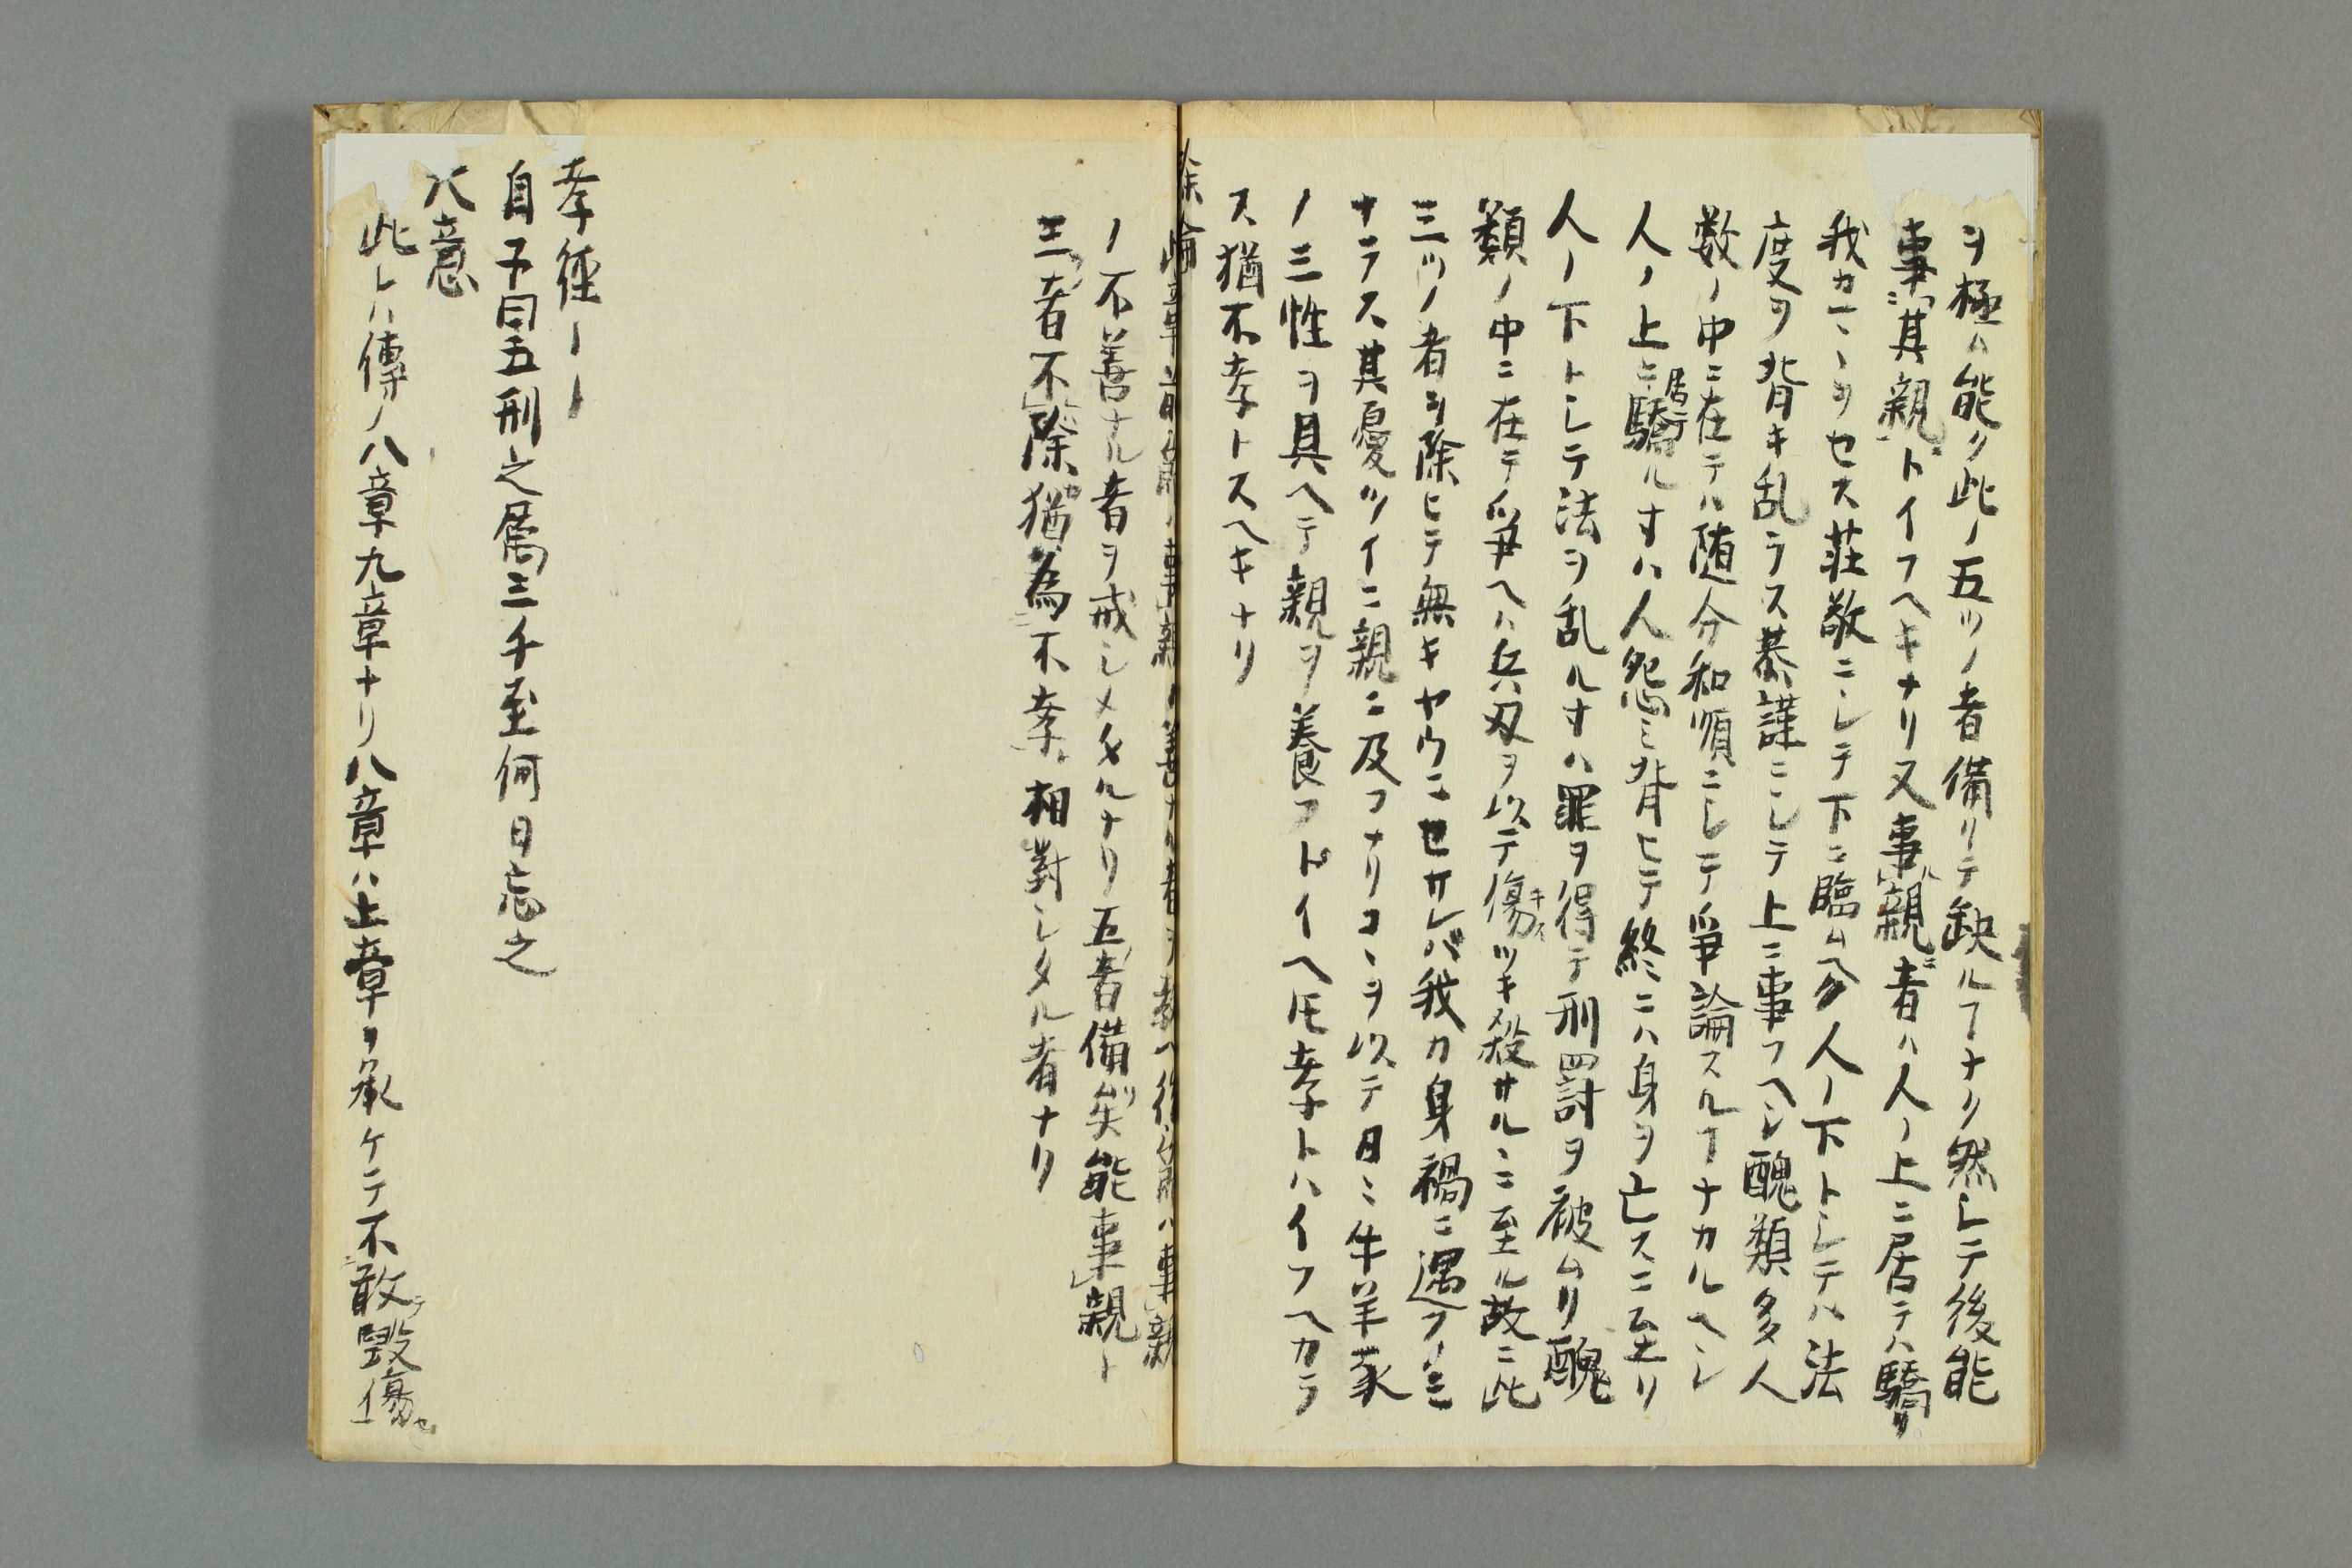 ヲ極ハ能ク此ノ五ツノ者備リテ缺ルヿナソ然シテ後能
事其親トイフヘキナリ又事親者ハ人ノ上ニ居テハ驕リ
我カマヽヲセス莊敬ニシテ下ニ臨ムヘシ人ノ下トシテハ法
度ヲ背キ乱ラス恭謹ニシテ上ニ事フヘシ醜類多人
数ノ中ニ在テハ随分和順ニシテ爭論スルヿナカルヘシ
人ノ上ニ居テ驕ルオハ人怨ミ背ヒテ終ニハ身ヲ亡スニ至リ
人ノ下トシテ法ヲ乱ルオハ罪ヲ得テ刑罰ヲ被ムリ醜
類ノ中ニ在テ爭ヘハ兵刃ヲ以テ傷ツキ殺サルヽニ至ル故ニ此
三ツノ者ヲ除ヒテ無キヤウニセサレバ我カ身禍ニ遇フノミ
ナラス其憂ツイニ親ニ及フナリコヽヲ以テ日ニ牛羊豕
ノ三牲ヲ具ヘテ親ヲ養フトイヘ𪜈孝トハイフヘカラ
ス猶不孝トスヘキナリ
餘論
此章前節ハ事親ノ善ナル者ヲ教ヘ後節ハ事親
ノ不善ナル者ヲ戒シメタルナリ五者備矣能事親ト
三者不除猶為不孝相對シタル者ナリ
孝経ーー
自子曰五刑之属三千至何日忘之
大意
此レハ傳ノ八章九章ナリ八章ハ上章ヲ承ケテ不敢毀傷